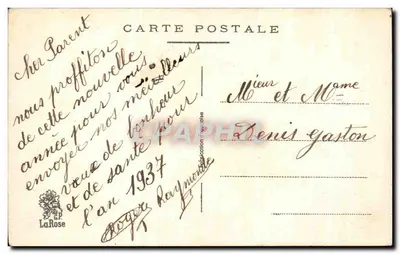 CARTE POSTALE
cher Parent
nous proffiton
de cette nouvelle
année pour vous
envoyer nos meilleurs
vœux de bonheur
et de santé pour
l'an 1937
Roger Raymonde
Mieur et Mame
Denis Gaston
LaRose